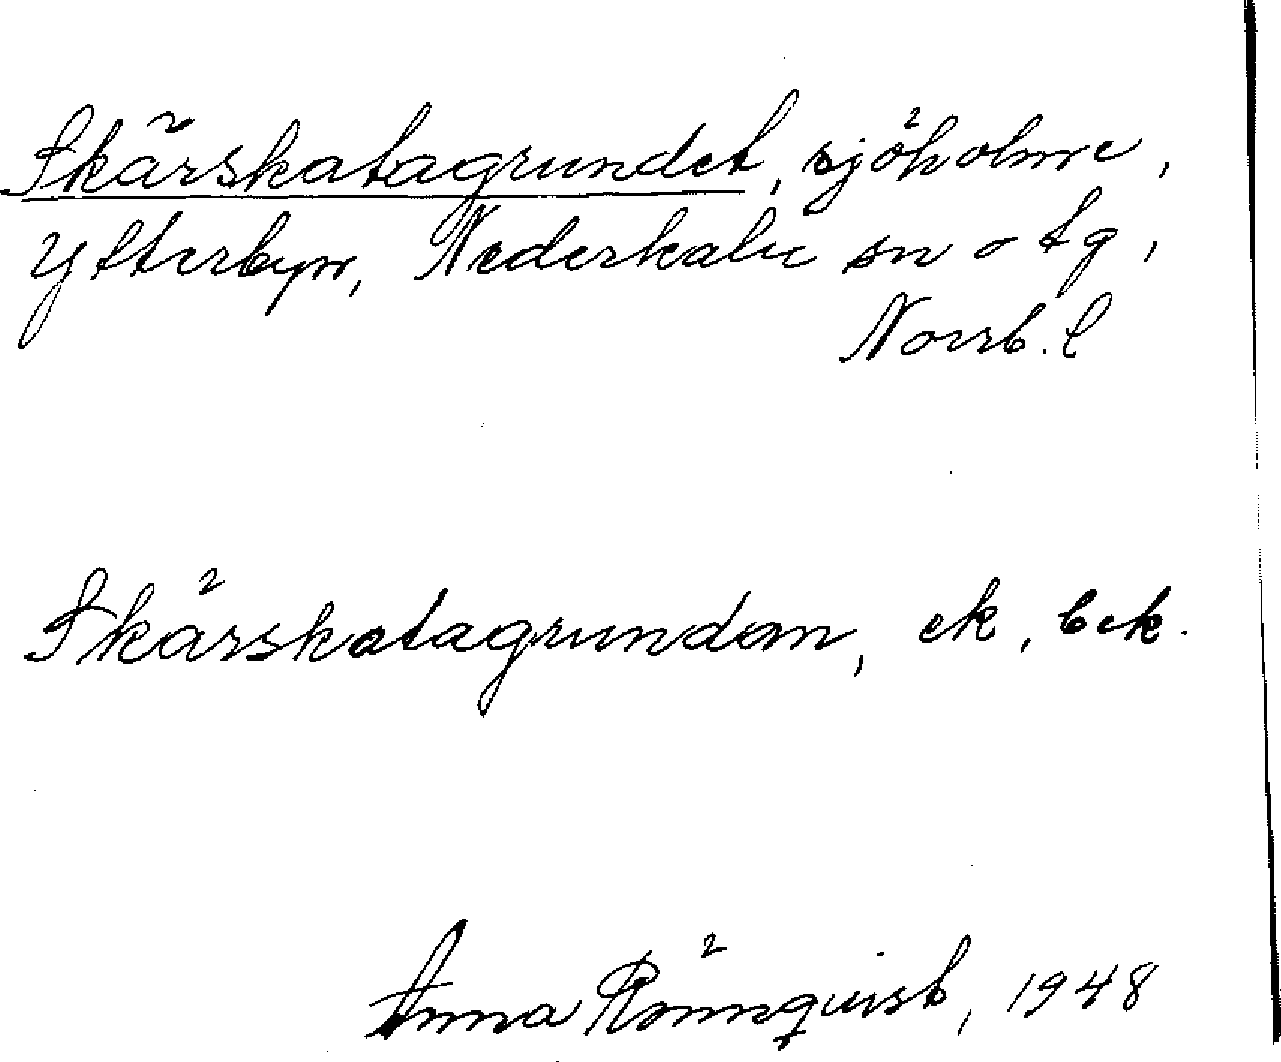 Skärskatagrundet, sjöholme,
Ytterbyn, Nederkalix sn o tg,
Norrb. l
Skärskatagrundan, ek, bek.
Anna Rönnquist, 1948